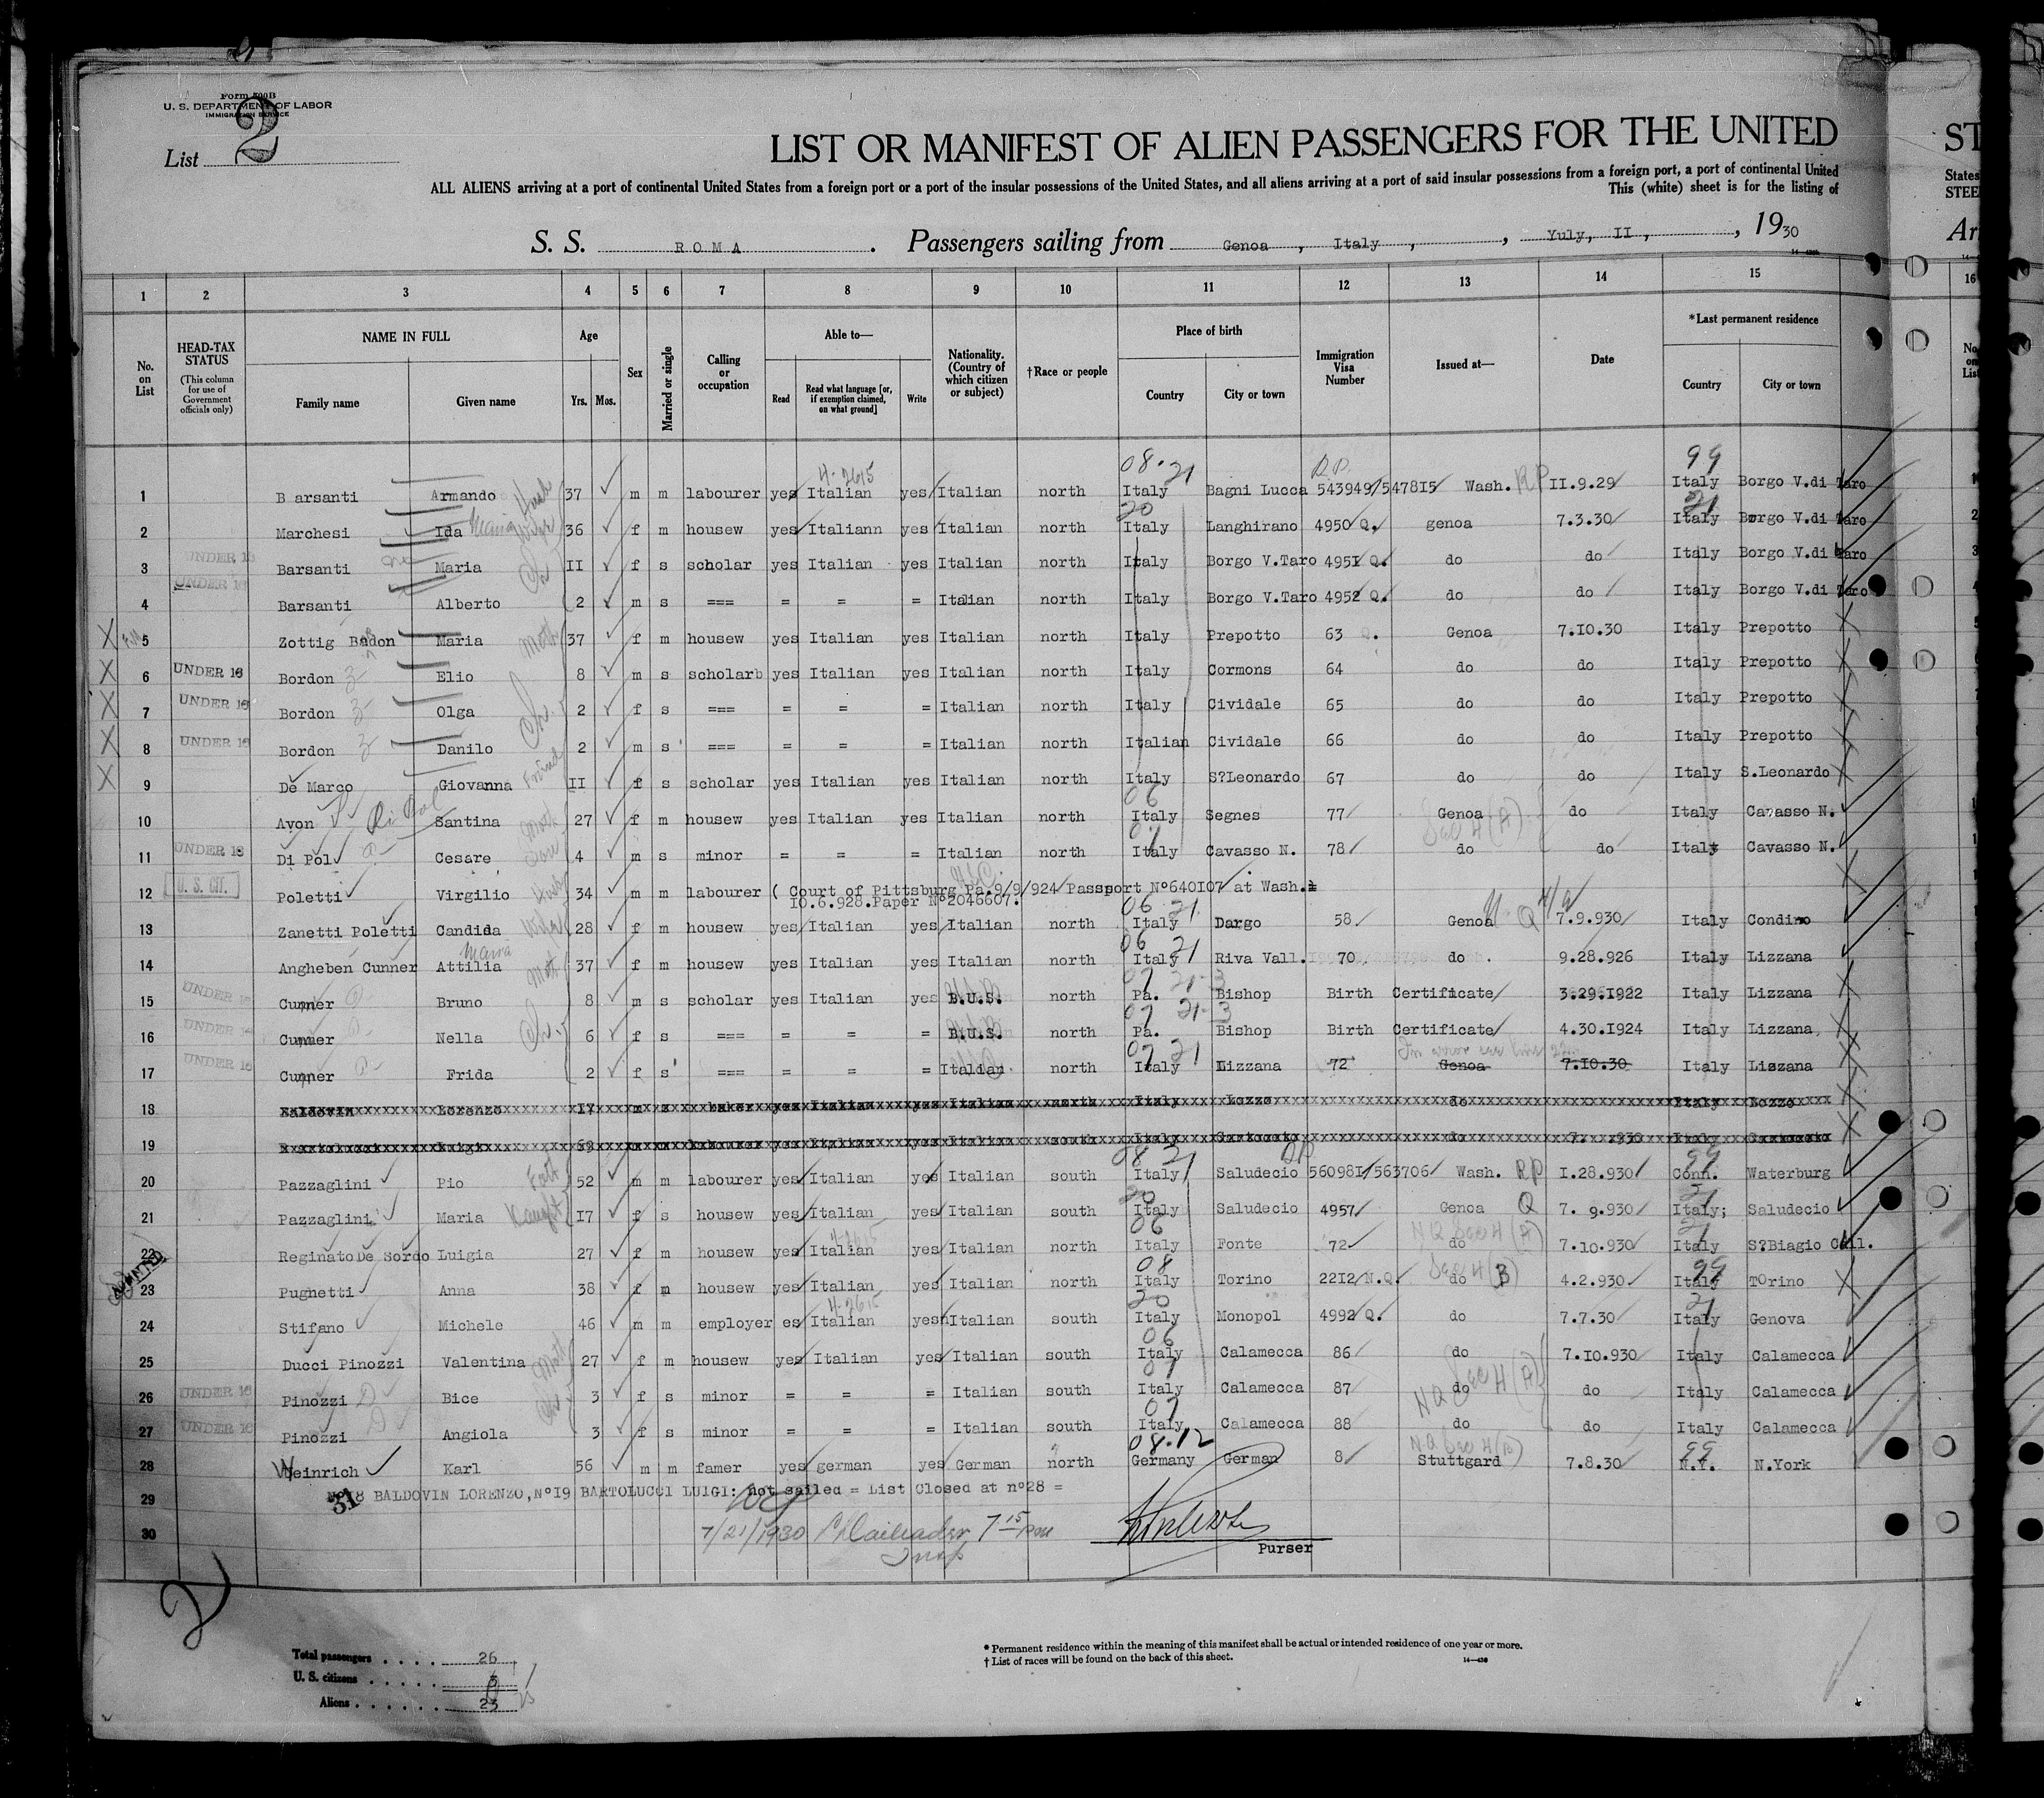 Form 500B
U. S. DEPARTMENT OF LABOR
IMMIGRATION SERVICE
List 2
LIST OR MANIFEST OF ALIEN PASSENGERS FOR THE UNITED
ALL ALIENS arriving at a port of continental United States from a foreign port or a port of the insular possessions of the United States, and all aliens arriving at a port of said insular possessions from a foreign port, a port of continental United
This (white) sheet is for the listing of
S. S. ROMA. Passengers sailing from Genoa, Italy, , Yuly, II, , 1930
1 2 3 4 5 6 7 8 9 10 11 12 13 14 15 16
No. on List
HEAD-TAX STATUS (This column for use of Government officials only)
NAME IN FULL Family name Given name
Age Yrs. Mos.
Sex
Married or single
Calling or occupation
Able to— Read Read what language [or, if exemption claimed, on what ground] Write
Nationality. (Country of which citizen or subject)
†Race or people
Place of birth Country City or town
Immigration Visa Number
Issued at—
Date
*Last permanent residence Country City or town
08-21 99
4-2615
1 B arsanti Armando Husb 37 m m labourer yes Italian yes Italian north Italy Bagni Lucca 543949/547815 Wash. RP II.9.29 Italy Borgo V.di Taro
20 21
2 Marchesi Ida Maria Wife 36 f m housew yes Italiann yes Italian north Italy Langhirano 4950 Q. genoa 7.3.30 Italy Borgo V.di Taro
UNDER 16
3 Barsanti Maria II f s scholar yes Italian yes Italian north Italy Borgo V.Taro 4951 Q. do do Italy Borgo V.di Taro
UNDER 16
4 Barsanti Alberto 2 m s === = = = Italian north Italy Borgo V.Taro 4952 Q. do do Italy Borgo V.di Taro
X 5 Zottig Bodon Maria Moth 37 f m housew yes Italian yes Italian north Italy Prepotto 63 Q. Genoa 7.I0.30 Italy Prepotto X
X 6 UNDER 16 Bordon Elio 8 m s scholarb yes Italian yes Italian north Italy Cormons 64 do do Italy Prepotto X
X 7 UNDER 16 Bordon Olga 2 f s === = = = Italian north Italy Cividale 65 do do Italy Prepotto X
X 8 UNDER 16 Bordon Danilo 2 m s === = = = Italian north Italian Cividale 66 do do Italy Prepotto X
X 9 De Marco Giovanna Friend II f s scholar yes Italian yes Italian north Italy S?Leonardo 67 do do Italy S.Leonardo X
06
10 Avon Di Pol Santina Moth 27 f m housew yes Italian yes Italian north Italy Segnes 77 Genoa Sec 4(A) do Italy Cavasso N.
11 UNDER 16 Di Pol Cesare Son 4 m s minor = = = Italian north Italy Cavasso N. 78 do do Italy Cavasso N.
12 U. S. CIT. Poletti Virgilio Husb 34 m m labourer ( Court of Pittsburg Pa.9/9/924 Passport N°640I07 at Wash. X
I0.6.928.Paper N°2046607.
06 21
13 Zanetti Poletti Candida Wife 28 f m housew yes Italian yes Italian north Italy Dargo 58 Genoa Q 7.9.930 Italy Condino
Maria 06 21
14 Angheben Cunner Attilia Mot 37 f m housew yes Italian yes Italian north Italy Riva Vall. 70 do . 9.28.926 Italy Lizzana
07 21-3
15 UNDER 16 Cunner Bruno 8 m s scholar yes Italian yes B.U.S. north Pa. Bishop Birth Certificate 3.29.1922 Italy Lizzana X
07 21-3
16 UNDER 16 Cunner Nella 6 f s === = = = B.U.S. north Pa. Bishop Birth Certificate 4.30.1924 Italy Lizzana X
07 21 In error see line 22
17 UNDER 16 Cunner Frida 2 f s === = = = Italian north Italy Lizzana 72 Genoa 7.10.30 Italy Liszana X
18 Baldovin Lorenzo I7 m s baker yes Italian yes Italian north Italy Lozzo do Italy Lozzo X
19 Bartolucci Luigi m labourer yes Italian yes Italian south Italy do 7. .930 Italy X
08 21 99
20 Pazzaglini Pio Fath 52 m m labourer yes Italian yes Italian south Italy Saludecio 560981/563706 Wash. RP I.28.930 Conn. Waterburg
20 21
21 Pazzaglini Maria Daught I7 f s housew yes Italian yes Italian south Italy Saludecio 4957 Genoa Q 7. 9.930 Italy; Saludecio
4-2615 06 NQ Sec 4(A) 21
22 Reginato De Sordo Luigia 27 f m housew yes Italian yes Italian north Italy Fonte 72 do 7.10.930 Italy S?Biagio Call.
08 Sec 4(B) 99
23 Pughetti Anna 38 f m housew yes Italian yes Italian north Italy Torino 2212 N.Q. do 4.2.930 Italy TOrino X
4-2615 20 21
24 Stifano Michele 46 m m employer es Italian yes Italian south Italy Monopol 4992 Q. do 7.7.30 Italy Genova
06
25 Ducci Pinozzi Valentina Moth 27 f m housew yes Italian yes Italian south Italy Calamecca 86 do 7.10.930 Italy Calamecca
07 NQ Sec 4(A)
26 UNDER 16 Pinozzi Bice 3 f s minor = = = Italian south Italy Calamecca 87 do do Italy Calamecca
07
27 UNDER 16 Pinozzi Angiola 3 f s minor = = = Italian south Italy Calamecca 88 do do Italy Calamecca
08-12 99
28 Weinrich Karl 56 m m famer yes german yes German north Germany German 8 Stuttgard 7.8.30 N.Y. N.York
29 N°I8 BALDOVIN LORENZO,N°I9 BARTOLUCCI LUIGI: not sailed = List Closed at n°28 =
31
30 7/21/1930 7 15 pm
Insp
Purser
2
Total passengers . . . . 26
U. S. citizens . . . . . 3
Aliens . . . . . . 23
* Permanent residence within the meaning of this manifest shall be actual or intended residence of one year or more.
† List of races will be found on the back of this sheet.
14—430